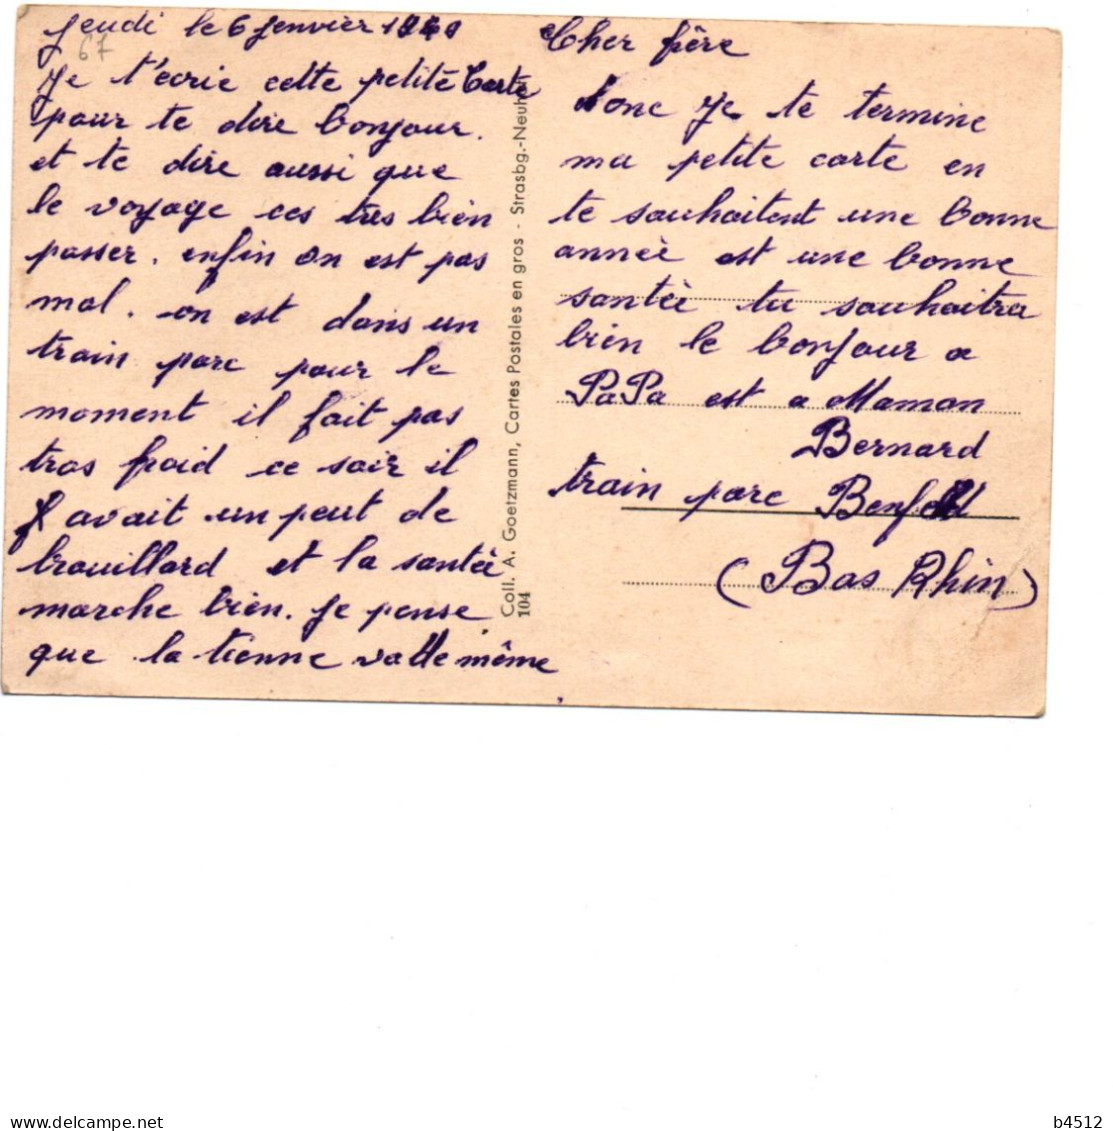 Jeudi le 6 Jenvier 1949
67
Cher frère
Je t'écrie cette petite Carte
pour te dire bonjour.
et te dire aussi que
le voyage ces très bien
passer. enfin on est pas
mal. on est dans un
train parc pour le
moment il fait pas
tros froid ce soir il
y avait un peut de
brouillard et la santée
marche bien. Je pense
que la tienne vatte même
Coll. A. Goetzmann, Cartes Postales en gros - Strasbg.-Neuhof
104
donc Je te termine
ma petite carte en
te souhaitent une bonne
année est une bonne
santée tu souhaitra
bien le bonjour a
PaPa est a Maman
Bernard
train parc Benfeld
(Bas Rhin)
b4512